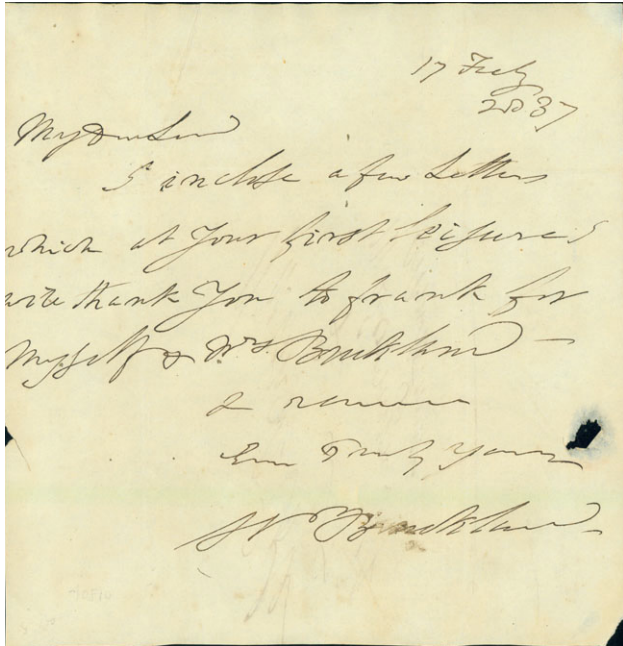 17 Feby
37
My Dear Lord
I inclose a few Letters
which at Your first leisure I
will thank You to frank for
Myself & Mrs. Buckland –
& remain
Ever Truly Yours
W Buckland